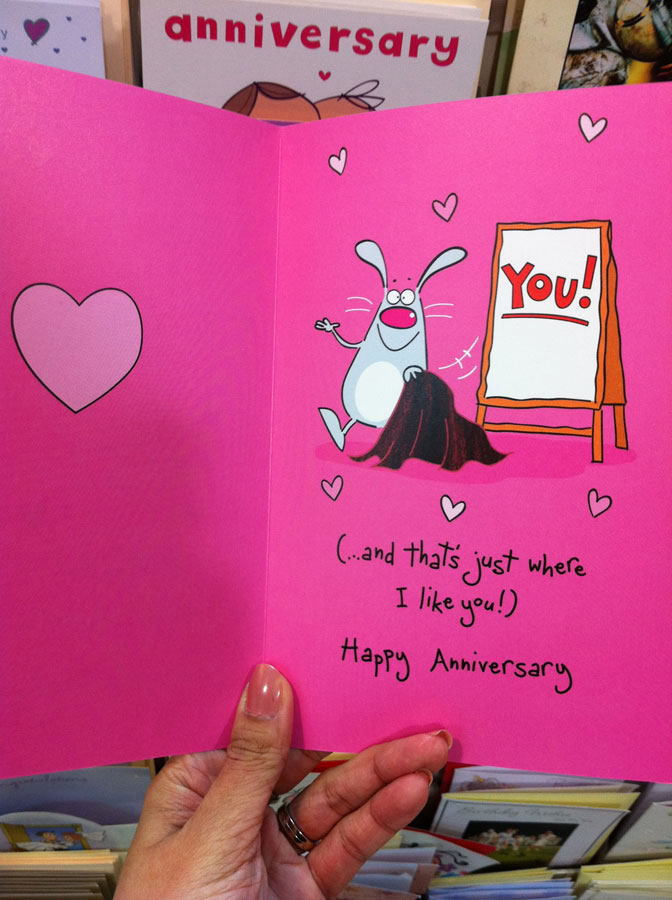 anniversary
YOU!
(...and that's just where
I like you!)
Happy Anniversary